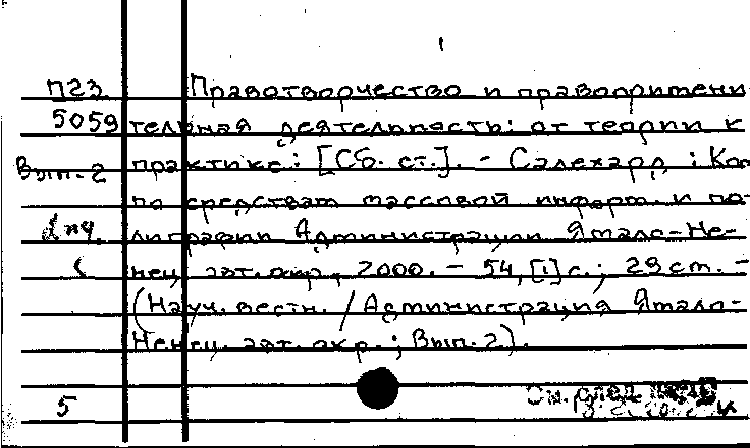 П23 Правотворчество и правопримени
5059 тельная деятельность: от теории к
Вып. 2 практике: [Сб. ст.]. - Салехард: Ком
по средствам массовой информ. и по-
лиграфии Администрации Ямало-Не-
нец. авт. окр., 2000. - 54, [1] с.; 29 см. -
(Науч. вестн. / Администрация Ямало-
Ненец. авт. окр.; Вып. 2).
5 См. след.